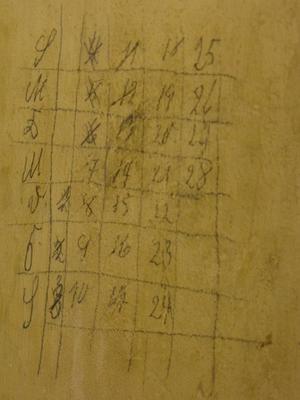 S 4 11 18 25
M 5 12 19 26
D 6 13 20 27
M 7 14 21 28
D 1 8 15 22
F 2 9 16 23
S 3 10 17 24